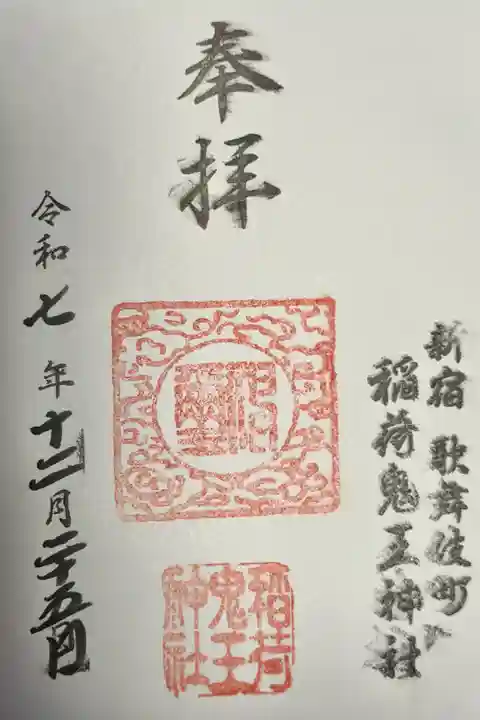 奉拝
新宿 歌舞伎町
稲荷鬼王神社
稲荷
鬼王
神社
令和七年十二月二十五日